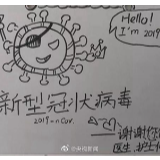 Hello!
I'm 2019
新型冠状病毒
2019-nCov.
谢谢你
医生,护士
@央视新闻